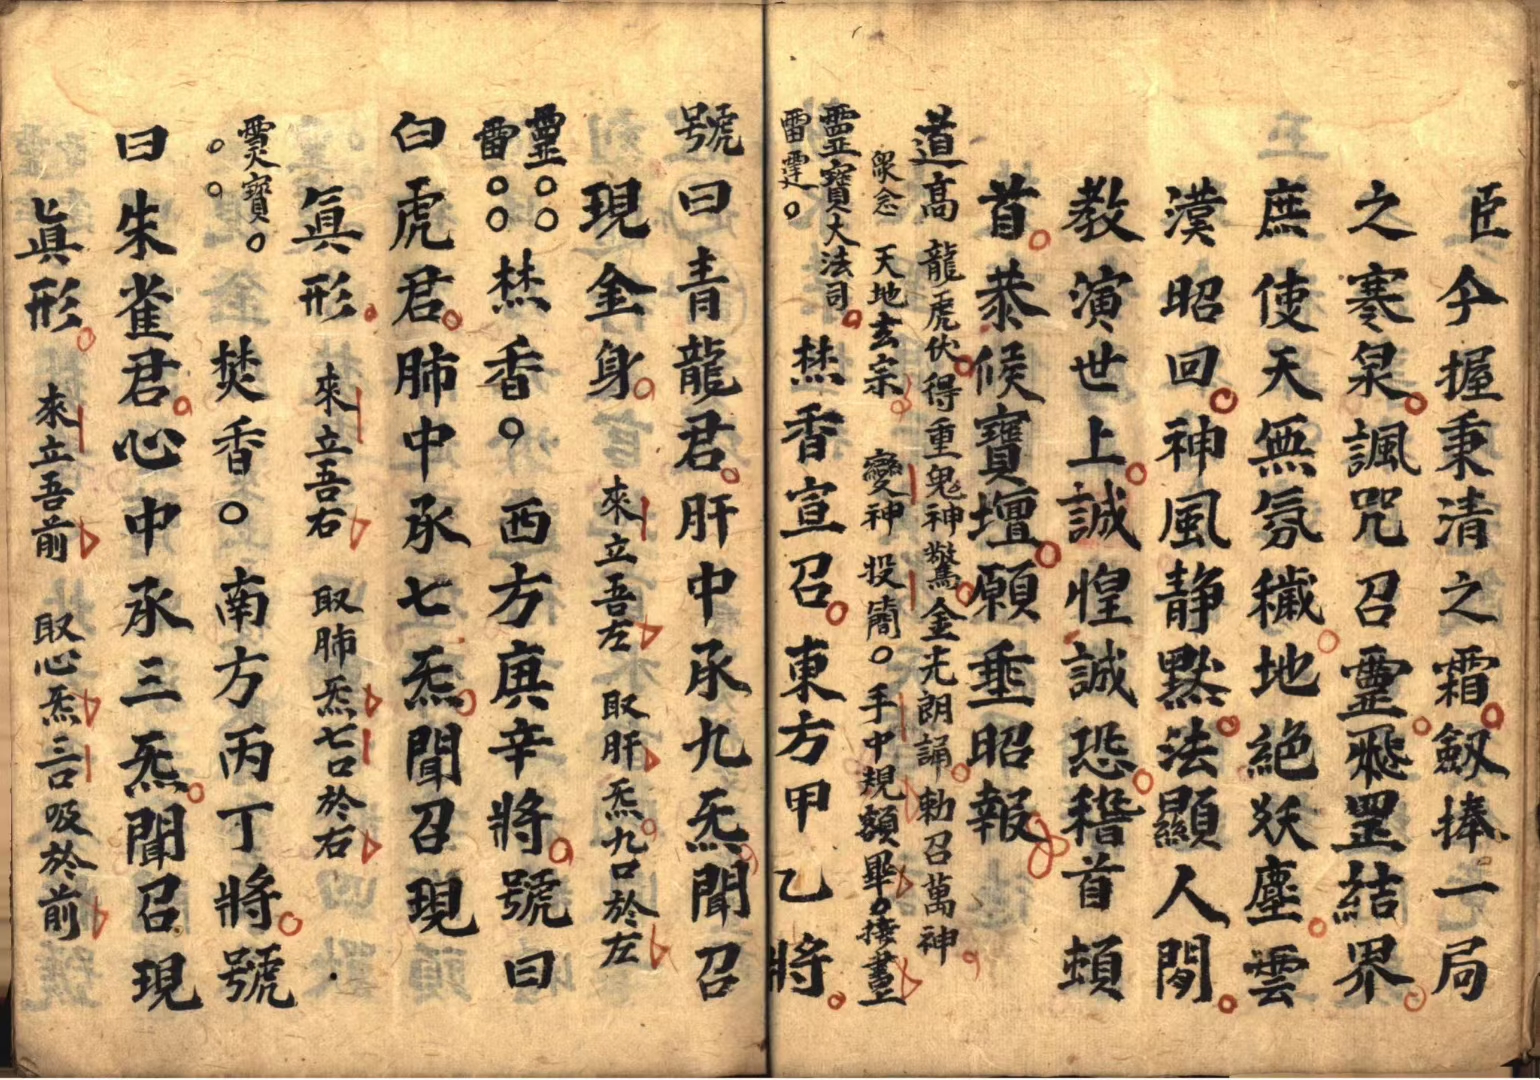 臣今握秉清之霜劔捧一局
之寒泉諷咒召靈飛罡結界
庶使天無氛穢地絕妖塵雲
漢昭回神風静黙法顯人間
教演世上誠惶誠恐稽首頓
首恭候寶壇願垂昭報
道高龍虎伏得重鬼神驚金光朗誦勅召萬神
衆念天地玄宗 變神投簡○手中規額畢○撥晝
靈寶大法司
雷霆○
焚香宣召東方甲乙將
號曰青龍君肝中承九炁聞召
現金身 來立吾左 取肝炁九口於左
靈○○
雷○○
焚香○西方庚辛將號曰
白虎君肺中承七炁聞召現
眞形 來立吾右 取肺炁七口於右
靈寶○
○○
焚香○南方丙丁將號
曰朱雀君心中承三炁聞召現
眞形 來立吾前 取心炁三口吸於前